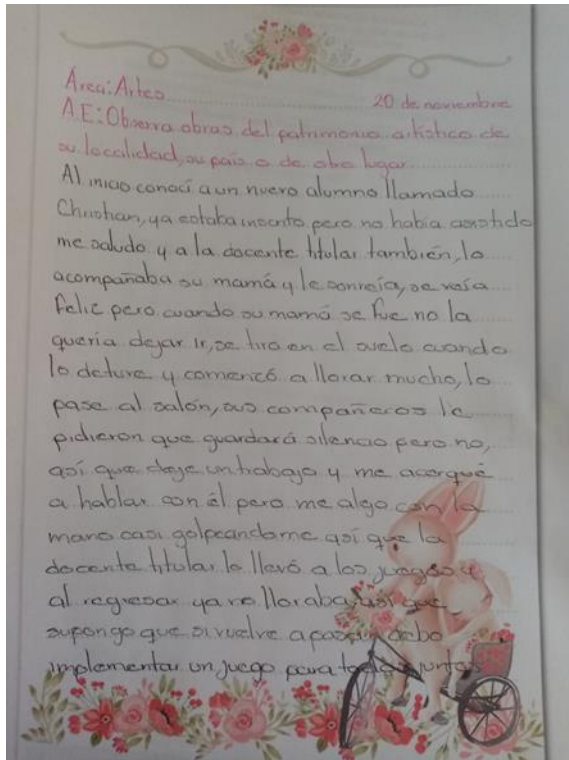 Área: Artes 20 de noviembre
AE: Observa obras del patrimonio artístico de
su localidad, su país o de otro lugar
Al inicio conocí a un nuevo alumno llamado
Christian, ya estaba inscrito pero no había asistido
me saludo y a la docente titular también, lo
acompañaba su mamá y le sonreía, se veía
feliz pero cuando su mamá se fue no la
quería dejar ir, se tiro en el suelo cuando
lo detuve y comenzó a llorar mucho, lo
pase al salón, sus compañeros le
pidieron que guardará silencio pero no,
así que deje un trabajo y me acerqué
a hablar con él pero me algo con la
mano casi golpeandome así que la
docente titular lo llevó a los juegos y
al regresar ya no lloraba, así que
supongo que si vuelve a pasar debo
implementar un juego para todos juntos